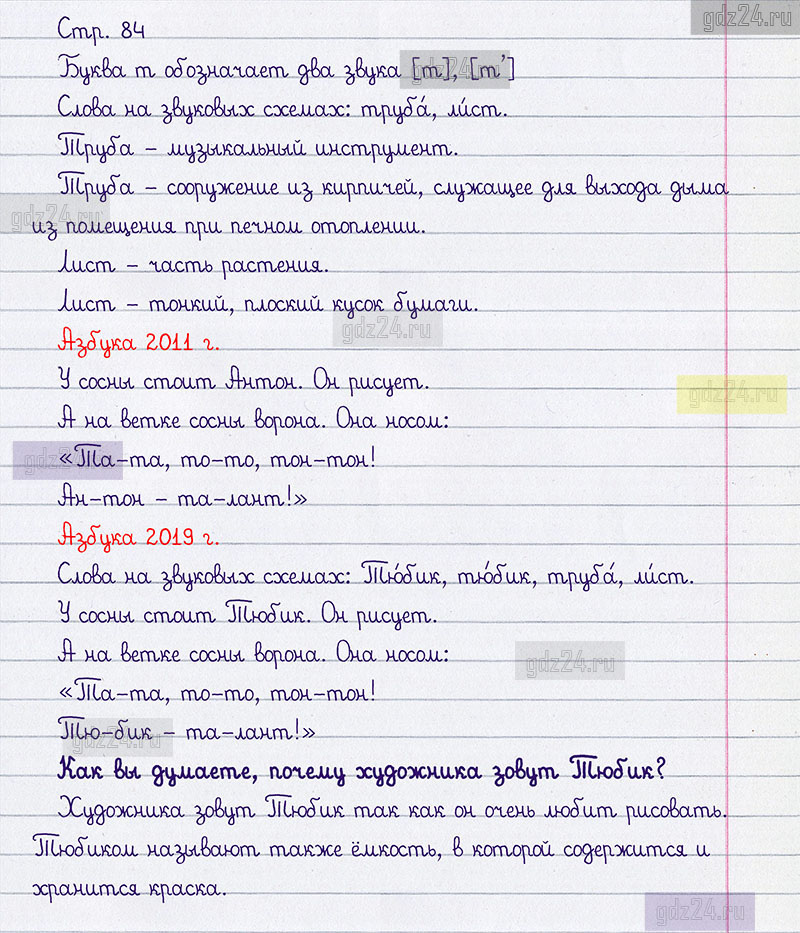 gdz24.ru
Стр. 84
Буква т обозначает два звука [т], [т']
Слова на звуковых схемах: труба́, ли́ст.
Труба – музыкальный инструмент.
Труба – сооружение из кирпичей, служащее для выхода дыма
gdz24.ru
из помещения при печном отоплении.
Лист – часть растения.
Лист – тонкий, плоский кусок бумаги.
gdz24.ru
Азбука 2011 г.
У сосны стоит Антон. Он рисует.
gdz24.ru
А на ветке сосны ворона. Она носом:
«Та-та, то-то, тон-тон!
Ан-тон – та-лант!»
Азбука 2019 г.
Слова на звуковых схемах: Тю́бик, тю́бик, труба́, ли́ст.
У сосны стоит Тюбик. Он рисует.
А на ветке сосны ворона. Она носом:
gdz24.ru
«Та-та, то-то, тон-тон!
Тю-бик – та-лант!»
gdz24.ru
Как вы думаете, почему художника зовут Тюбик?
Художника зовут Тюбик так как он очень любит рисовать.
Тюбиком называют также ёмкость, в которой содержится и
хранится краска.
gdz24.ru